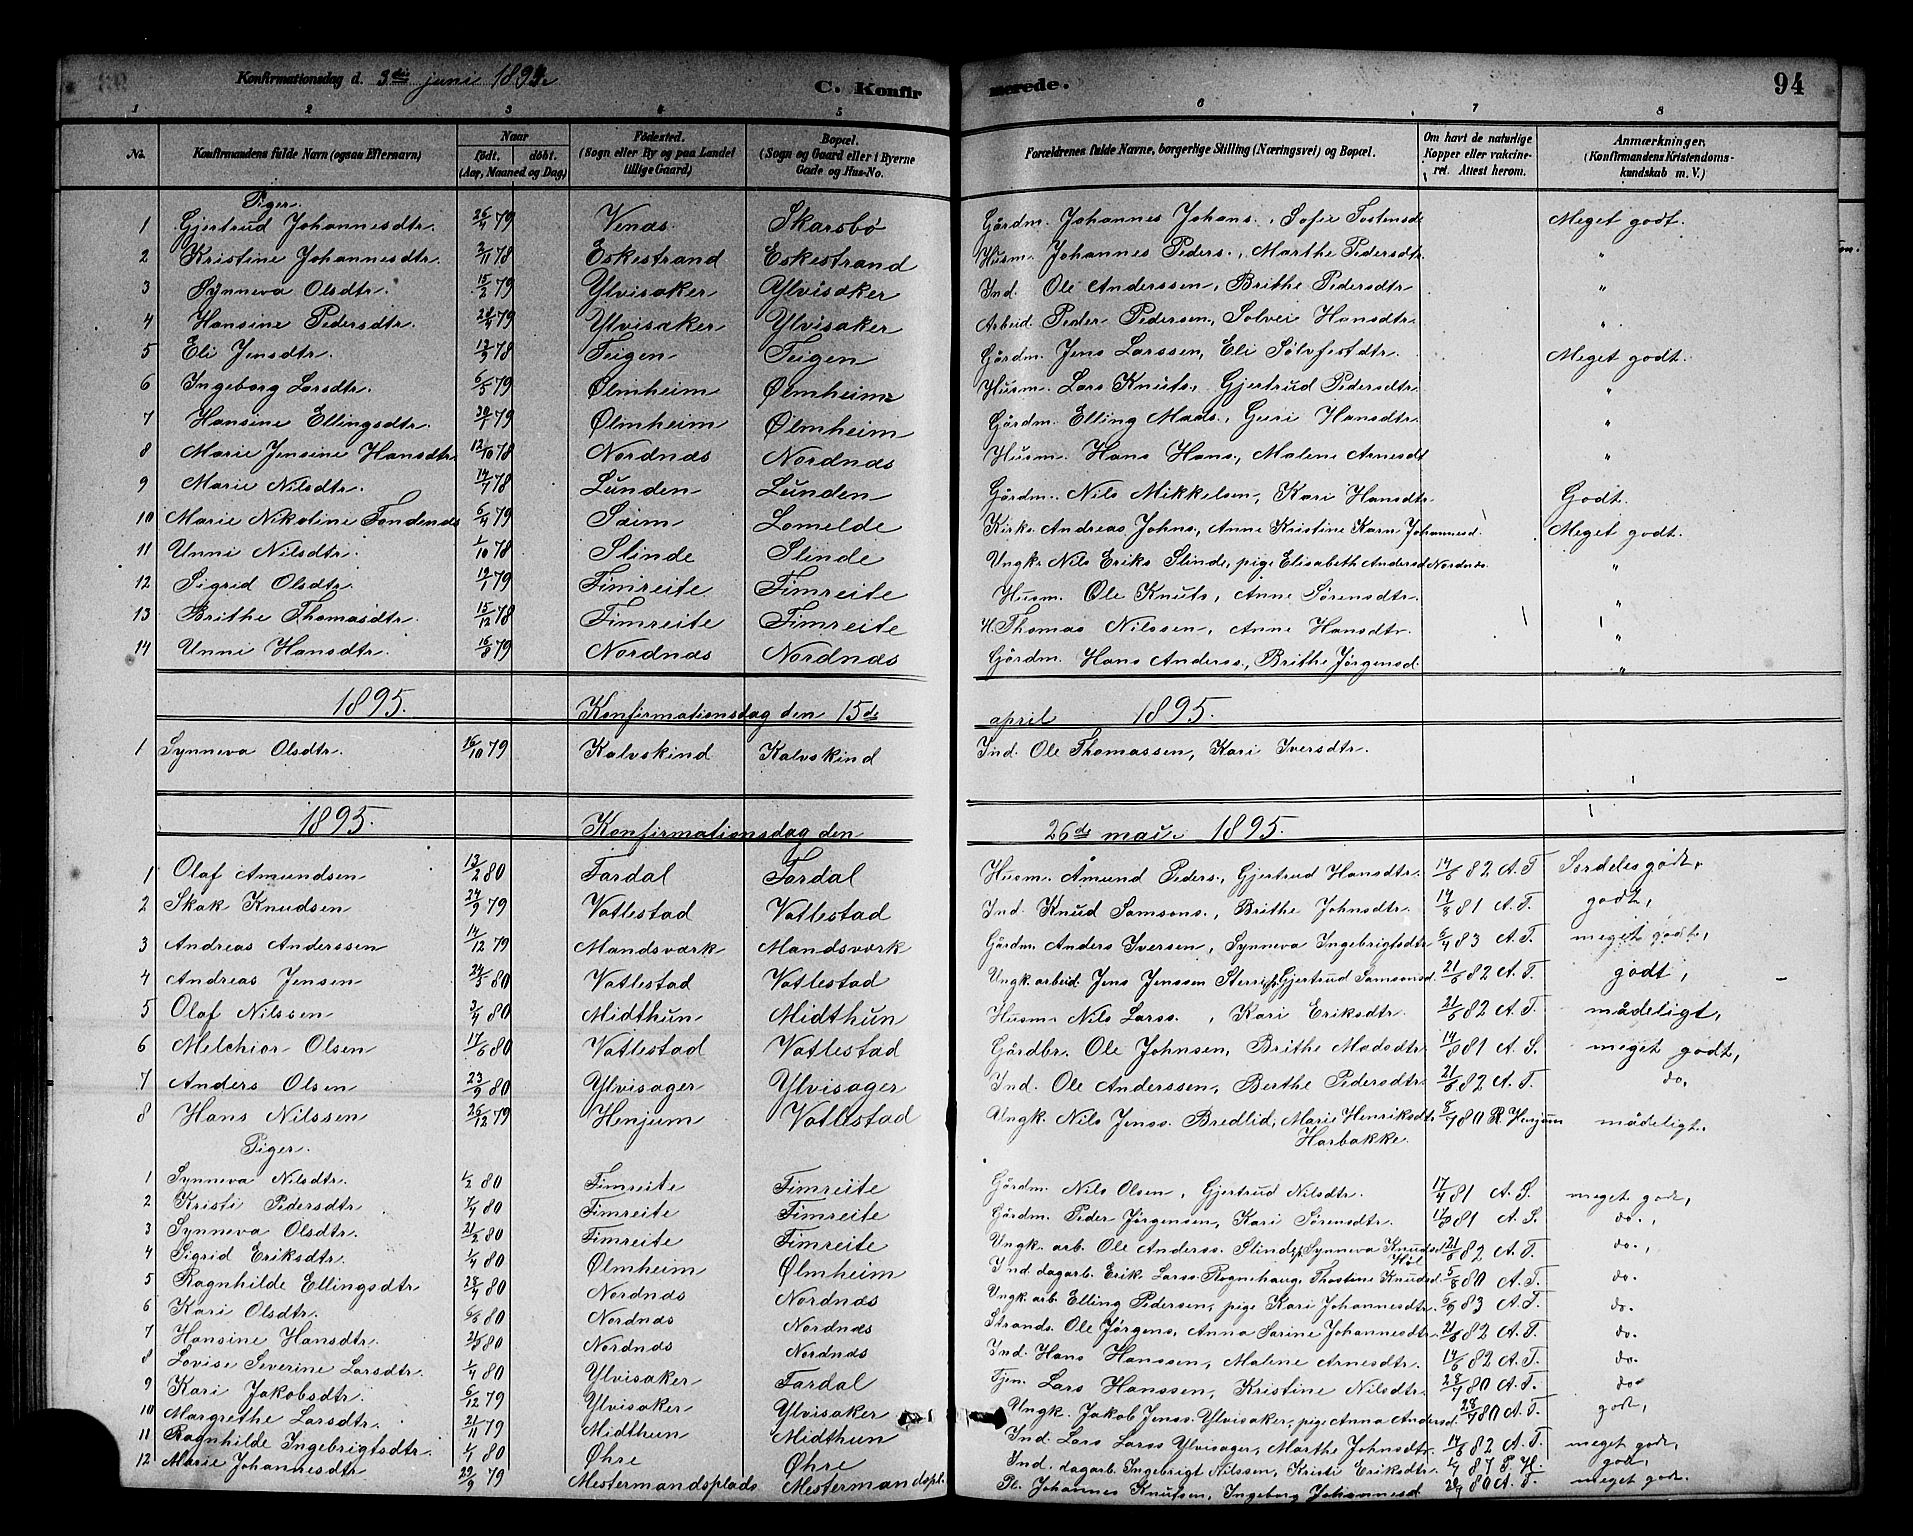 Konfirmationsdag d. 3die juni 1894. C. Konfirmerede. 94
1 2 3 4 5 6 7 8
No. Konfirmandens fulde Navn (ogsaa Efternavn) Naar født. døbt. (Aar, Maaned og Dag) Fødested. (Sogn eller By og paa Landet tillige Gaard) Bopæl. (Sogn og Gaard eller i Byerne Gade og Hus-No. Forældrenes fulde Navne, borgerlige Stilling (Næringsvei) og Bopæl. Om havt de naturlige Kopper eller vakcineret. Attest herom. Anmærkninger. (Konfirmandens Kristendomskundskab m. V.)
Piger.
1 Gjertrud Johannesdtr. 26/4 79 Venæs Skarsbø Gårdm. Johannes Johans., Sofie Tostensdr Meget godt.
2 Kristine Johannesdtr. 2/11 78 Eskestrand Eskestrand Husm. Johannes Peders., Marthe Pedersdtr. "
3 Synneva Olsdtr. 15/2 79 Ylvisaker Ylvisaker Ind. Ole Anderssen, Brithe Pedersdtr "
4 Hansine Pedersdtr. 24/4 79 Ylvisaker Ylvisaker Arbeid. Peder Pedersen, Solvei Hansdtr. "
5 Eli Jensdtr. 12/9 78 Teigen Teigen Gårdm. Jens Larssen, Eli Sølvfestdtr. Meget godt.
6 Ingeborg Larsdtr. 6/5 79 Ølmheim Ølmheim Husm. Lars Knuts., Gjertrud Pedersdtr. "
7 Hansine Ellingsdtr. 30/1 79 Ølmheim Ølmheim Gårdm. Elling Mads., Guri Hansdtr. "
8 Marie Jensine Hansdtr. 12/10 78 Nordnæs Nordnæs Husm. Hans Hans., Malene Arnesdt "
9 Marie Nilsdtr. 14/7 78 Lunden Lunden Gårdm. Nils Mikkelsen, Kari Hansdtr. Godt.
10 Marie Nikoline Tondenæs 6/4 79 Saim Lomelde Kirke. Andreas Johns., Anne Kristine Karn Johannesd. Meget godt.
11 Unni Nilsdtr. 1/10 78 Slinde Slinde Ungk. Nils Eriks. Slinde, pige Elisabeth Andersd Nordnæs "
12 Sigrid Olsdtr. 12/7 79 Fimreite Fimreite Husm. Ole Knuts., Anne Sørensdtr. "
13 Brithe Thomasdtr. 15/12 78 Fimreite Fimreite H. Thomas Nilssen, Anne Hansdtr. "
14 Unni Hansdtr. 16/8 79 Nordnæs Nordnæs Gårdm. Hans Anderss., Brithe Jørgensd. "
1895. Konfirmationsdag den 15de april 1895.
1 Synneva Olsdtr. 16/10 79 Kalvskind Kalvskind Ind. Ole Thomassen, Kari Iversdtr.
1895. Konfirmationsdag den 26de mai 1895.
1 Olaf Amundsen 13/2 80 Fardal Fardal Husm. Åmund Peders., Gjertrud Hansdtr. 14/6 82 A. T. Særdeles godt,
2 Skak Knudsen 24/9 79 Vatlestad Vatlestad Ind. Knud Samsons., Brithe Johnsdtr. 14/8 81 A. T. godt,
3 Andreas Anderssen 14/12 79 Mandsværk Mandsværk Gårdm. Anders Iversen, Synneva Ingebrigtsdtr 6/4 83 A. T. meget godt,
4 Andreas Jensen 24/5 80 Vatlestad Vatlestad Ungk. arbeid. Jens Jenssen, Gjertrud Samsonsd. 21/6 82 A. T. godt,
5 Olaf Nilssen 3/4 80 Midthun Midthun Husm. Nils Larss., Kari Eriksdtr. 21/6 82 A. T. mådeligt,
6 Melchior Olsen 17/6 80 Vatlestad Vatlestad Gårdbr. Ole Johnsen, Brithe Madsdtr 14/8 81 A. S. meget godt,
7 Anders Olsen 23/9 80 Ylvisager Ylvisager Ind. Ole Anderssen, Berthe Pedersdtr. 21/6 82 A. T. do.
8 Hans Nilssen 26/12 79 Henjum Vatlestad Ungk. Nils Jenss. Bredlid, Marie Henriksdtr. Harbakke. 8/7 80 R. Henjum mådeligt.
Piger.
1 Synneva Nilsdtr. 1/2 80 Fimreite Fimreite Gårdm. Nils Olsen, Gjertrud Nilsdtr. 17/4 81 A. S. meget godt,
2 Kristi Pedersdtr 7/4 80 Fimreite Fimreite Gårdm. Peder Jørgensen, Kari Sørensdtr. 17/8 81 A. S. do.,
3 Synneva Olsdtr. 21/2 80 Fimreite Fimreite Ungk. arb. Ole Anderss. Slinde, p. Synneva Knudsd. Høl 21/6 82 A. T. do.,
4 Sigrid Eriksdtr. 1/4 80 Ølmheim Ølmheim Ind. dagarb. Erik Larss. Rognehaug, Thostine Knudsd. 5/8 80 A. T. do.
5 Ragnhilde Ellingsdtr 28/4 80 Nordnæs Nordnæs Ungk. arb. Elling Pedersen, pige Kari Johannesdtr. 6/9 83 A. T. do.
6 Kari Olsdtr. 6/8 80 Nordnæs Nordnæs Strands. Ole Jørgens., Anna Sarine Johannesdtr. 21/6 82 A. T. do.
7 Hansine Hansdtr. 21/5 80 Nordnæs Nordnæs Ind. Hans Hanssen, Malene Arnesdtr. 14/6 82 A. T. do.
8 Lovise Severine Larsdtr. 1/4 80 Ylvisaker Fardal Tjen. Lars Hanssen, Kristine Nilsdtr. 28/7 80 A. T. do.
9 Kari Jakobsdtr. 6/12 79 Ylvisaker Ylvisaker Ungk. Jakob Jenss. Ylvisaker, pige Anna Andersd. 28/7 80 A. T. godt,
10 Margrethe Larsdtr. 21/11 79 Midthun Midthun Ind. Lars Larss. Ylvisager, Marthe Johnsdtr. 14/6 82 A. T. meget godt,
11 Ragnhilde Ingebrigtsdtr. 1/1 80 Øhre Øhre Ind. dagarb. Ingebrigt Nilssen, Kristi Eriksdtr. 1/4 87 P. H. godt,
12 Marie Johannesdtr 29/9 79 Mestermandsplads Mestermandspl. Pl. Johannes Knutsen, Ingeborg Johannesd 80 A. T. meget godt.